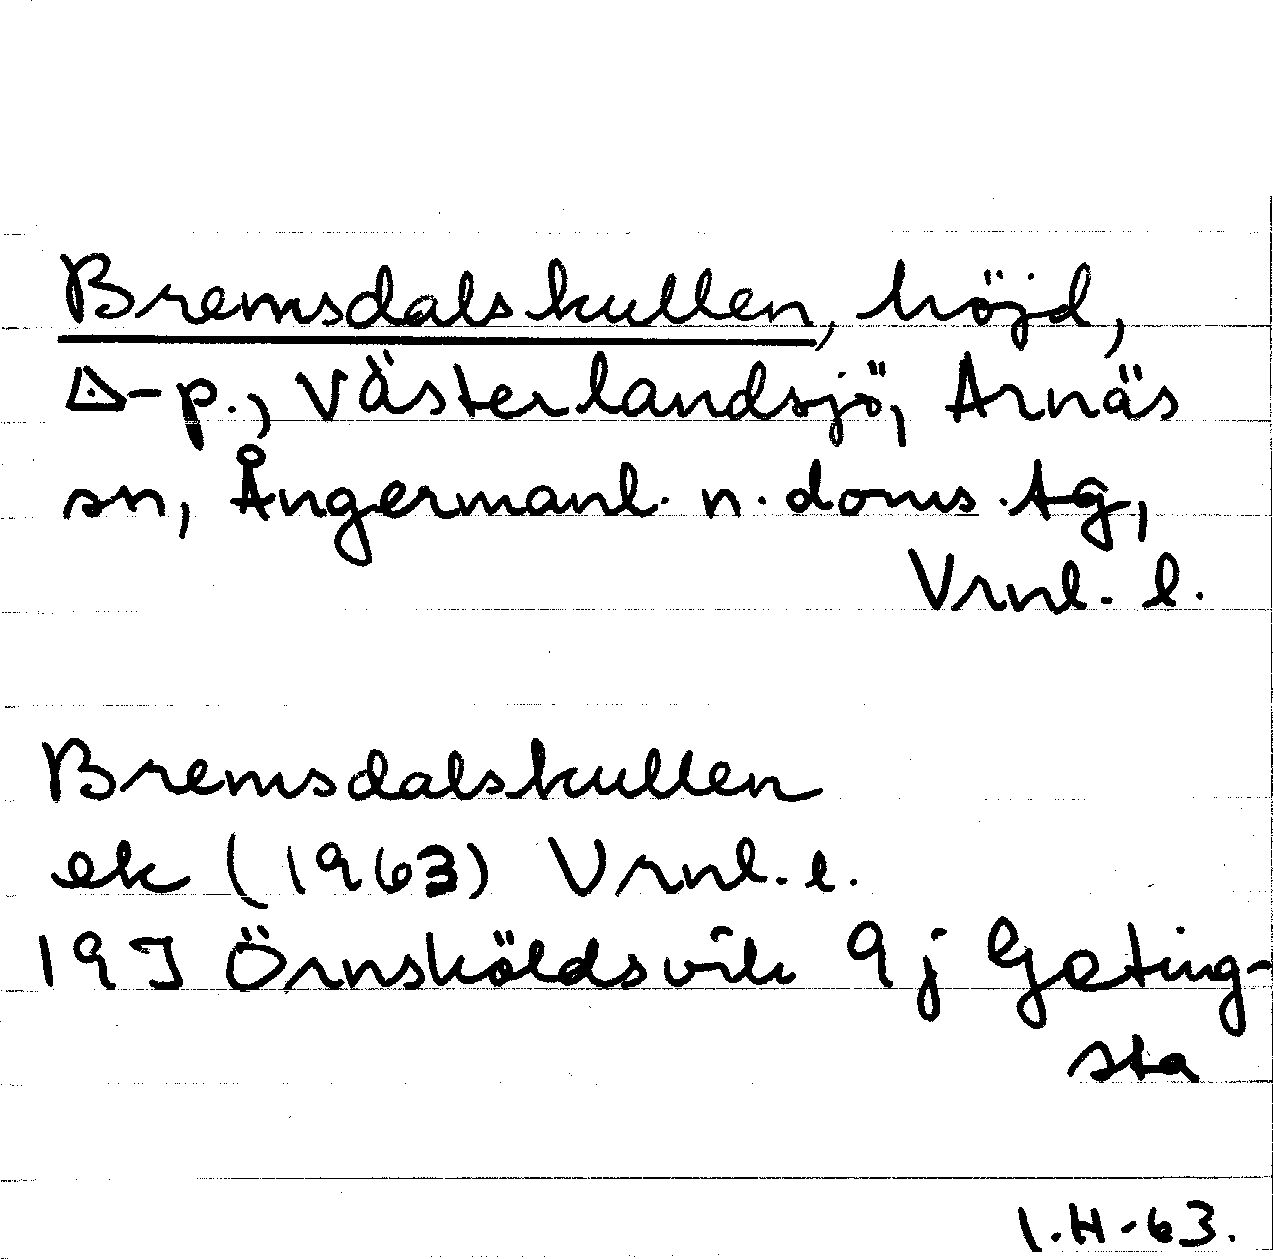 Bremsdalskullen, höjd,
△-p., Västerlandsjö, Arnäs
sn, Ångermanl. n. doms. tg,
Vrnl. l.
Bremsdalskullen
ek (1963) Vrnl. l.
19J Örnsköldsvik 9j Geting-
sta
I.H-63.